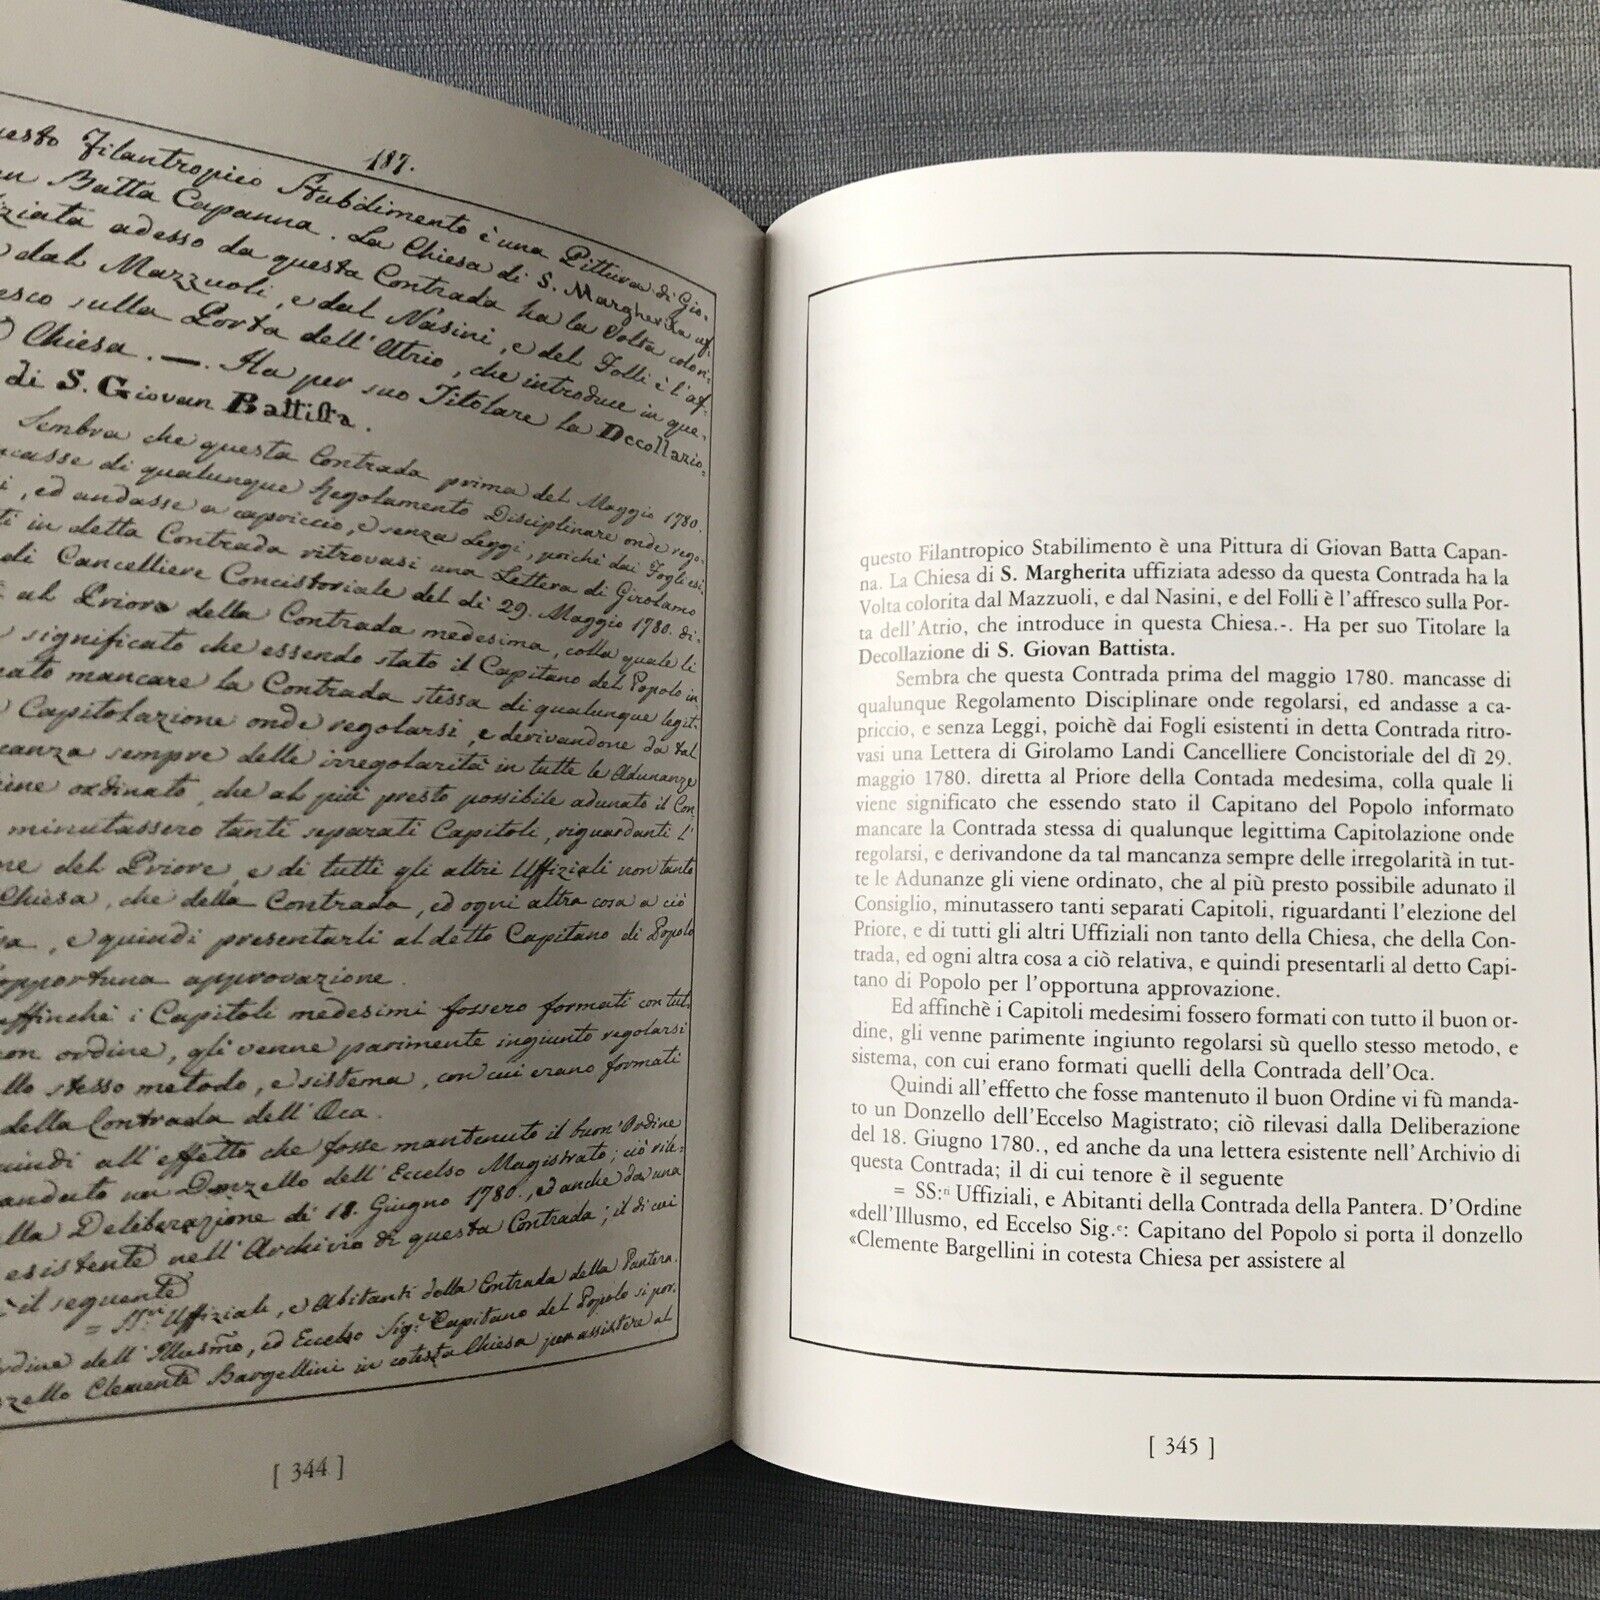 187.
Filantropico Stabdimento è una Pittura di Gio-
Batta Capanna. La Chiesa di S. Margherita uf-
adesso da questa Contrada ha la Volta colori-
dal Mazzuoli, e dal Nasini, e del Folli è l'af-
sulla Porta dell'Atrio, che introduce in que-
Chiesa. —. Ha per suo Titolare la Decollazio-
di S. Giovan Battista.
Sembra che questa Contrada prima del Maggio 1780.
di qualunque Regolamento Disciplinare onde rego-
, ed andasse a capriccio, e senza Leggi, poichè dai Fogli esi-
in detta Contrada ritrovasi una Lettera di Girolamo
di Cancelliere Concistoriale del dì 29. Maggio 1780. di-
al Priore della Contrada medesima, colla quale li
significato che essendo stato il Capitano del Popolo in-
mancare la Contrada stessa di qualunque legit-
Capitolazione onde regolarsi, e derivandone da tal
sempre delle irregolarità in tutte le Adunanze
ordinato, che al più presto possibile adunato il Con-
minutassero tanti separati Capitoli, riguardanti l'
del Priore, e di tutti gli altri Uffiziali non tanto
Chiesa, che della Contrada, ed ogni altra cosa a ciò
, e quindi presentarli al detto Capitano di Popolo
opportuna approvazione.
i Capitoli medesimi fossero formati con tut-
ordine, gli venne parimente ingiunto regolarsi
stesso metodo, e sistema, con cui erano formati
della Contrada dell'Oca.
all'effetto che fosse mantenuto il buon'Ordine
un Donzello dell'Eccelso Magistrato; ciò rile-
Deliberazione di 18. Giugno 1780., ed anche da una
esistente nell'Archivio di questa Contrada; il di cui
è il seguente
= SS:ri Uffiziali, e Abitanti della Contrada della Pantera.
dell'Illusmo, ed Eccelso Sig.e Capitano del Popolo si por-
Clemente Bargellini in cotesta Chiesa per assistere al
[ 344 ]
questo Filantropico Stabilimento è una Pittura di Giovan Batta Capan-
na. La Chiesa di S. Margherita uffiziata adesso da questa Contrada ha la
Volta colorita dal Mazzuoli, e dal Nasini, e del Folli è l'affresco sulla Por-
ta dell'Atrio, che introduce in questa Chiesa.-. Ha per suo Titolare la
Decollazione di S. Giovan Battista.
Sembra che questa Contrada prima del maggio 1780. mancasse di
qualunque Regolamento Disciplinare onde regolarsi, ed andasse a ca-
priccio, e senza Leggi, poichè dai Fogli esistenti in detta Contrada ritro-
vasi una Lettera di Girolamo Landi Cancelliere Concistoriale del dì 29.
maggio 1780. diretta al Priore della Contada medesima, colla quale li
viene significato che essendo stato il Capitano del Popolo informato
mancare la Contrada stessa di qualunque legittima Capitolazione onde
regolarsi, e derivandone da tal mancanza sempre delle irregolarità in tut-
te le Adunanze gli viene ordinato, che al più presto possibile adunato il
Consiglio, minutassero tanti separati Capitoli, riguardanti l'elezione del
Priore, e di tutti gli altri Uffiziali non tanto della Chiesa, che della Con-
trada, ed ogni altra cosa a ciò relativa, e quindi presentarli al detto Capi-
tano di Popolo per l'opportuna approvazione.
Ed affinchè i Capitoli medesimi fossero formati con tutto il buon or-
dine, gli venne parimente ingiunto regolarsi sù quello stesso metodo, e
sistema, con cui erano formati quelli della Contrada dell'Oca.
Quindi all'effetto che fosse mantenuto il buon Ordine vi fù manda-
to un Donzello dell'Eccelso Magistrato; ciò rilevasi dalla Deliberazione
del 18. Giugno 1780., ed anche da una lettera esistente nell'Archivio di
questa Contrada; il di cui tenore è il seguente
= SS:ri Uffiziali, e Abitanti della Contrada della Pantera. D'Ordine
«dell'Illusmo, ed Eccelso Sig.e: Capitano del Popolo si porta il donzello
«Clemente Bargellini in cotesta Chiesa per assistere al
[ 345 ]